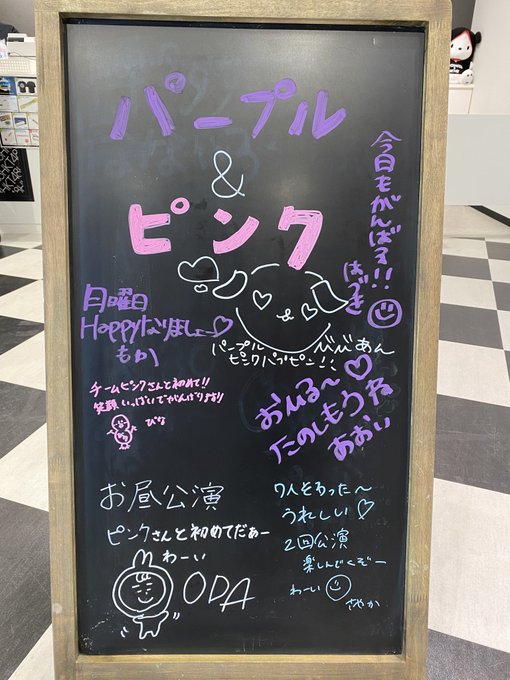 パープル
&
ピンク
今日もがんばる!!
はづき
月曜日
Happyなりましょ〜♡
もか
パープル
ピンクパプピン!!
びびあん
チームピンクさんと初めて!!
笑顔いっぱいでがんばります!!
ひな
おひる〜♡
たのしもうね
あおい
お昼公演
ピンクさんと初めてだぁー
わーい
ODA
7人そろった〜
うれしい♡
2回公演
楽しんでくぞー
わーい
さやか